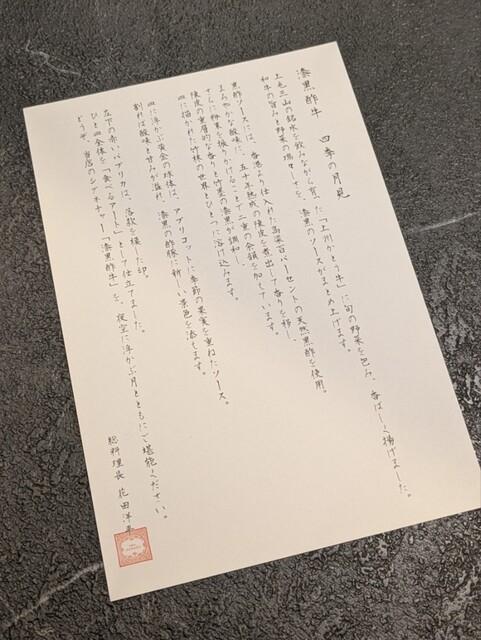 漆黒酢牛　四季の月見
上毛三山の銘水を飲みながら育った「上州かとう牛」に旬の野菜を包み、香ばしく揚げました。
和牛の旨みと野菜の瑞々しさを、漆黒のソースがまとめ上げます。
黒酢ソースには、香港より仕入れた高粱百パーセントの天然黒酢を使用。
まろやかな酸味に、五十年熟成の陳皮を煮出して香りを移し、
さらに粉末を振りかけることで二重の余韻を加えています。
陳皮の重層的な香りと竹墨の漆黒が調和し、
皿に描かれた竹林の世界とひとつに溶け込みます。
皿に浮かぶ黄金の球体は、アプリコットに季節の果実を重ねたソース。
割れば酸味と甘みが溢れ、漆黒の酢豚に新しい景色を添えます。
左下の赤いパプリカは、落款を模した印。
ひと皿全体を「食べるアート」として仕立てました。
どうぞ、当店のシグネチャー「漆黒酢牛」を、夜空に浮かぶ月とともにご堪能ください。
総料理長　花田洋平